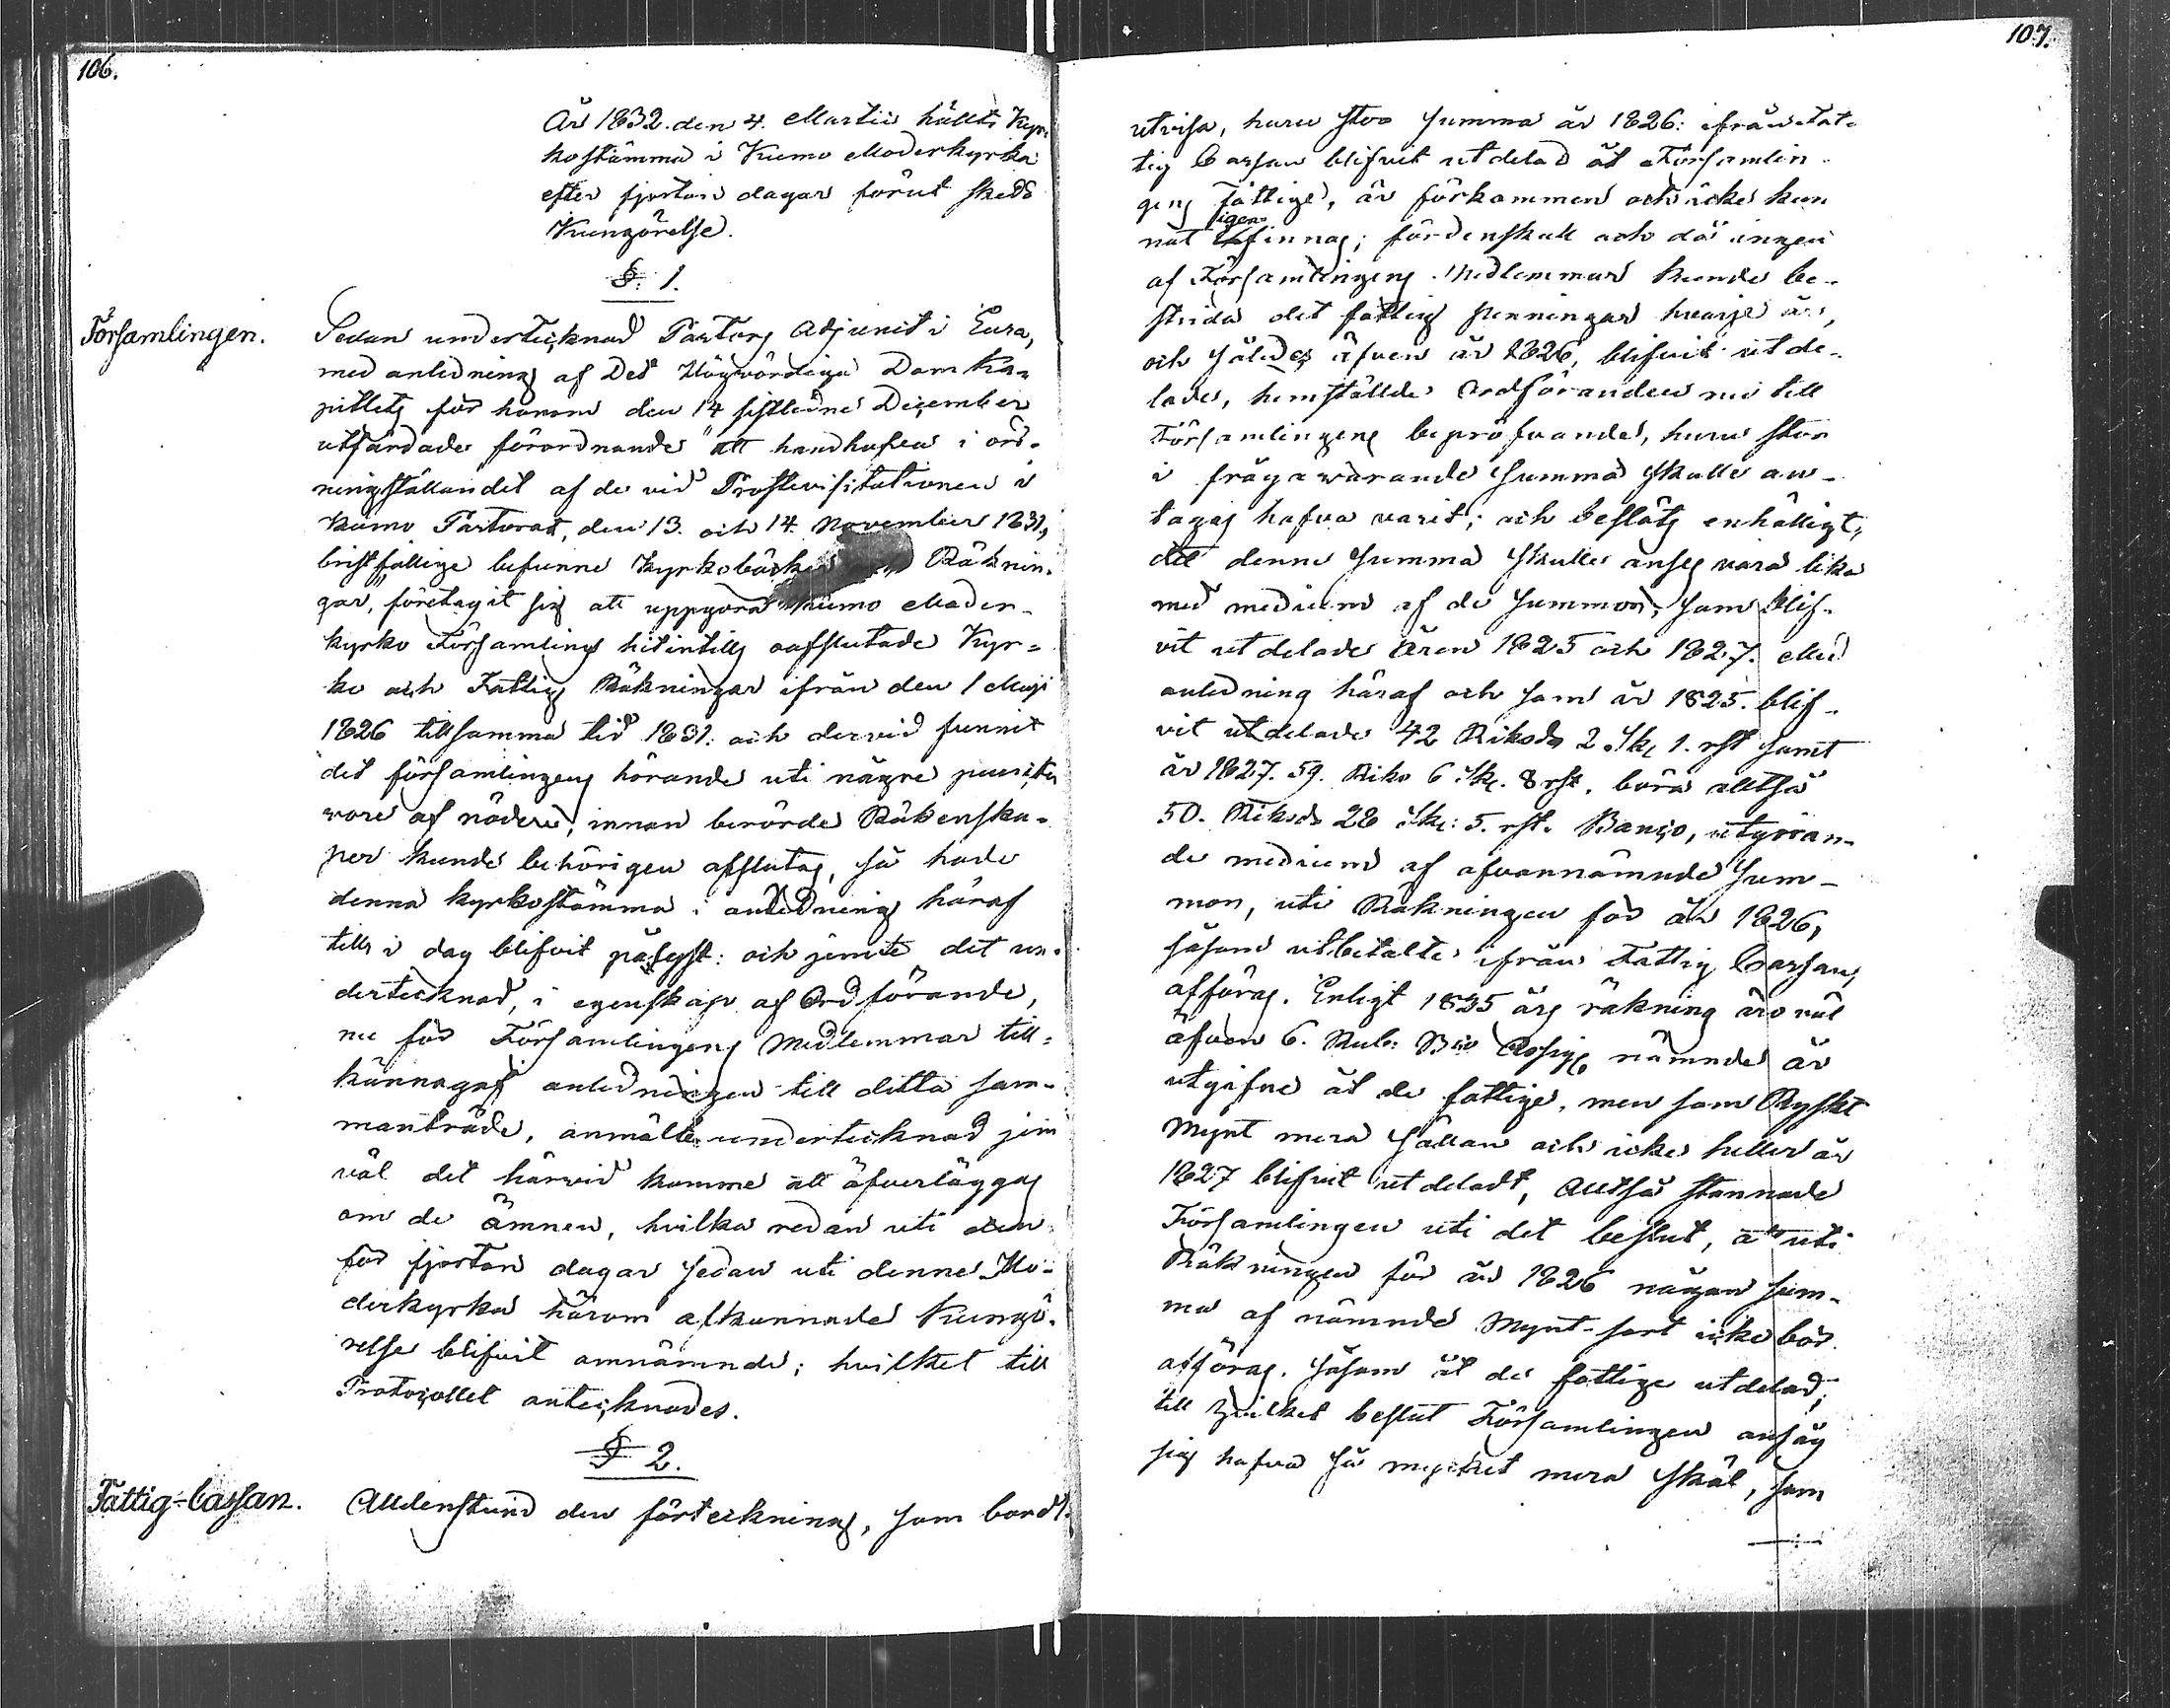 106.
År 1832. den 4. Martii hållts Kyr-
kostämma i Kumo Moderkyrka
efter fjorton dagar förut skedd
Kungörelse.
§. 1.
Församlingen.
Sedan undertecknad Pastors Adjunct i Eura,
med anledning af Det Högvördiga Domka-
pittlets för honom den 14 sistledne December
utfärdade förordnande att handhafva i ord-
ningställandet af de vid Prostevisitationen i
Kumo Pastorat, den 13. och 14. November 1831,
bristfällige befunne Kyrkoböcker Räknin-
gar, företagit sig att uppgöra Kumo Moder-
kyrko Församlings hitintills oafslutade Kyr-
ko och Fattig Räkningar ifrån den 1 Maji
1826 till samma tid 1831: och dervid funnit
det församlingens hörande uti någre puncter
vore af nöden, innan berörde Räkenska-
per kunde behörigen afslutas, så hade
denna kyrkostämma i anledning häraf
till i dag blifvit påsyst: och jemte det un-
dertecknad, i egenskap af Ordförande,
nu för Församlingens Medlemmar till-
kännagaf anledningen till detta sam-
manträde, anmälte undertecknad jem
väl det härvid komme att öfverläggas
om de ämnen, hvilka redan uti den
för fjorton dagar sedan uti denne Mo-
derkyrka härom afkunnade Kungö-
relse blifvit omnämnde; hvilket till
Protocollet antecknades.
§ 2.
Fattig-Cassan.
Alldenstund den förteckning, som bordt
107.
utvisa, huru stor summa år 1826: ifrån Fat-
tig Cassan blifvit utdelad åt Församlin-
gens fattige, är förkommen och icke kun
nat igenfinnas; fördenskull och då ingen
af Församlingens Medlemmar kunde be-
strida det fattig penningar hvarje år,
och således äfven år 1826, blifvit utde-
lade, hemställde Ordföranden nu till
Församlingens bepröfvande, huru stor
i fråga warande summa skulle an-
tagas hafva varit; och beslöts enhälligt,
det denne summa skulle anses vara lika
med medium af de summor, som blif-
vit utdelade åren 1825 och 1827. Med
anledning häraf och som år 1825. blif-
vit utdelade 42 Riksd 2 Sk 1. rst samt
år 1827. 59. Riks 6 Sk. 8 rst. böra alltså
50. Riksd 28 Sk: 5. rst. Banco, utgöran-
de medium af ofvannämnde sum-
mor, uti Räkningen för år 1826,
såsom utbetalte ifrån Fattig Cassan,
afföras. Enligt 1825 års räkning äro väl
äfven 6. Rub: Bco Assig nämnde år
utgifne åt de fattige, men som Ryskt
Mynt mera sällan och icke heller år
1827 blifvit utdeladt, Alltså stannade
Församlingen uti det beslut, att uti
Räkningen för år 1826 någon sum-
ma af nämnde Mynt-sort icke bör
afföras, såsom åt de fattige utdelad,
till hvilket beslut Församlingen ansåg
sig hafva så mycket mera skäl, som